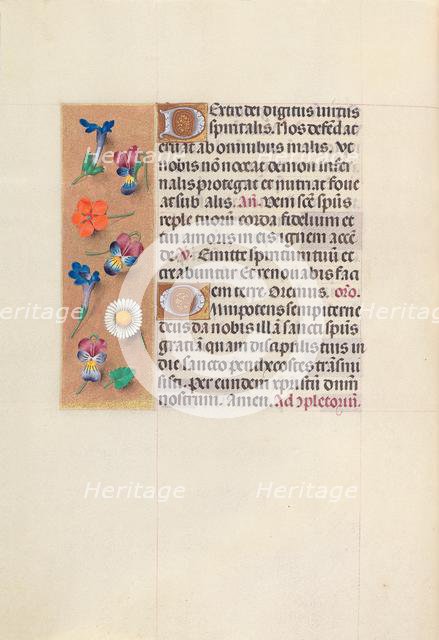 Dextre dei digitus virtus
spiritalis. Nos defendat
eruat ab omnibus malis. Vt
nobis non noceat demon infer
nalis protegat et nutriat foue
at sub alis. Añ. Veni scē spūs
reple tuorum corda fidelium et
tui amoris in eis ignem accē
de. V. Emitte spiritum tuū et
creabuntur Et renouabis faci
em terre. Oremus. oro.
Omnipotens sempiterne
deus da nobis illā sancti spūs
gratiā quam discipulis tuis in
die sancto penthecostes trāsmi
sisti. per eundem xpristū dnūm
nostrum. Amen. Ad ɔpletoriū.
Heritage
Heritage
Heritage
Heritage
Heritage
Heritage